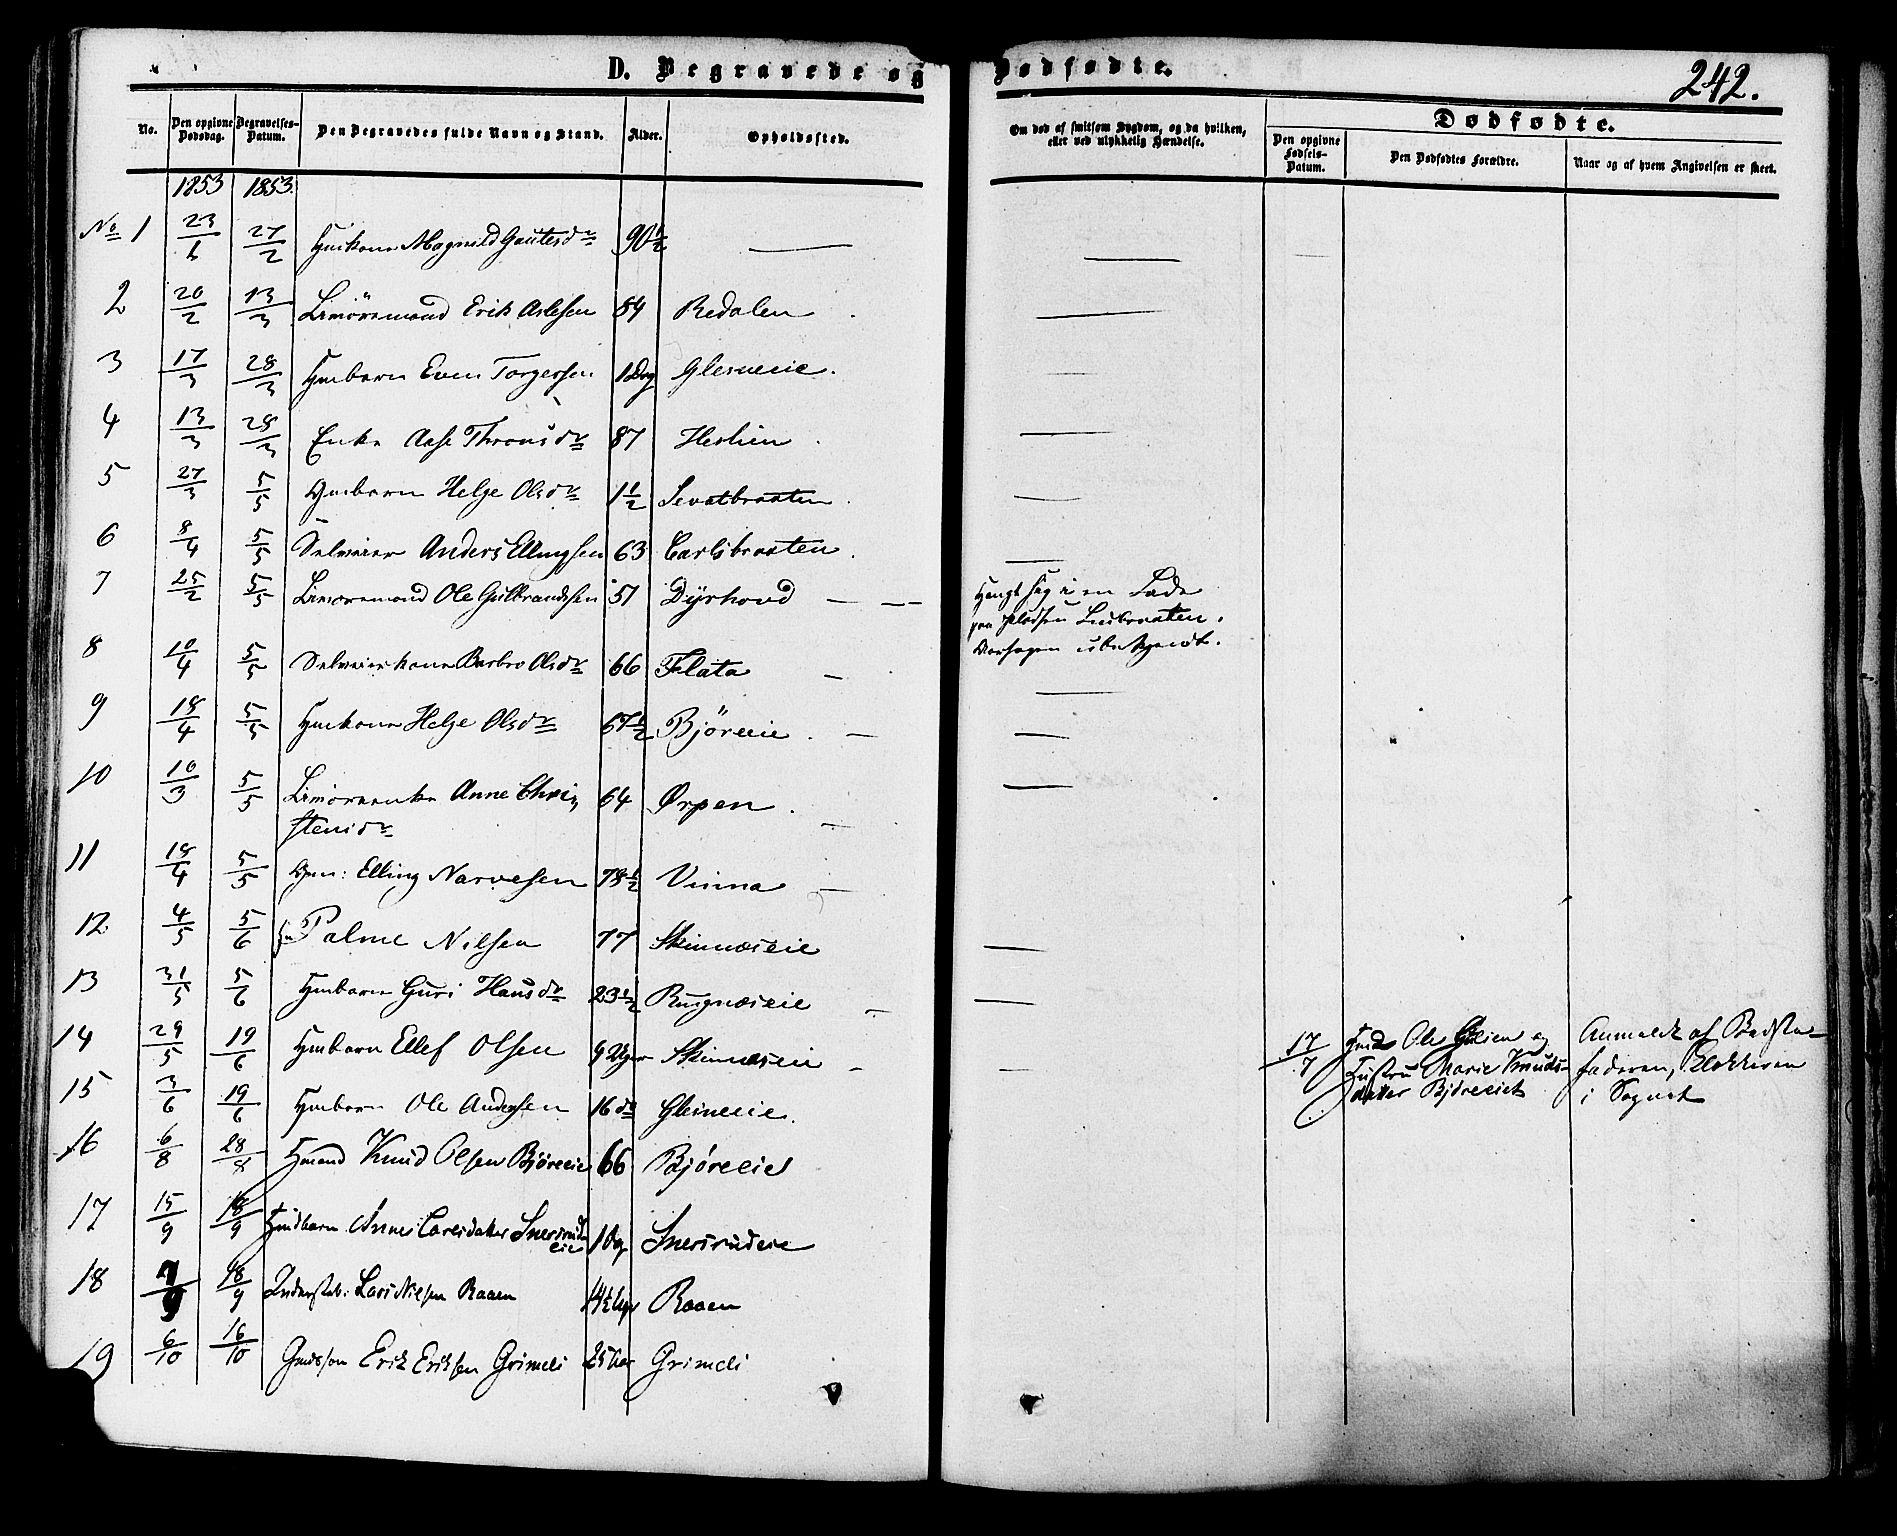 D. Begravede og Dødfødte.
242.
No. Den opgivne Dødsdag. Begravelses-Datum. Den Begravedes fulde Navn og Stand. Alder. Opholdssted. Om død af smitsom Sygdom, og da hvilken, eller ved ulykkelig Hændelse. Dødfødte. Den opgivne Fødsels-Datum. Den Dødfødtes Forældre. Naar og af hvem Angivelsen er skeet.
1853 1853.
No 1 23/ 27/2 Hmkone Magnild Gautesdr 90 1/2 —
2 20/2 13/3 Erik Aslesen 84 Redalen
3 17/3 28/3 Hmbarn Even Torgersen 1 Dag Glesneeie.
4 13/3 28/3 Enke Aase Thronsdr 87
5 27/3 5/5 Gmbarn Helge Olsdr 1 1/2 Sevatbraaten
6 8/4 5/5 Selveier Anders Ellingsen 63 Carlsbraaten
7 25/2 5/5 Ole Gulbrandsen 57 Dyrhovd — —
Hengt sig i en Lade
paa Pladsen
Aarsagen ubekjendt.
8 10/4 5/5 Selveierkone Barbro Olsdr 66 Flata
9 18/4 5/5 Hmkone Helge Olsdr 67 1/2 Bjøreeie
10 10/3 5/5 Anne Chri-
stensdr 64 Ørpen
11 18/4 5/5 Elling Narvesen 78 1/2 Vinna
12 4/5 5/6 Palme Nilsen 77 Skinneseie
13 31/5 5/6 Hmbarn Guri Hansdr 23 1/2 Rugneseie
14 29/5 19/6 Hmbarn Ellef Olsen 9 Uger Skinneseie
17/7 Ole og
Hustru Marie Knuds-
datter Bjøreeiet
Anmeldt af Bedste-
faderen, Klokkeren
i Sognet
15 3/6 19/6 Hmbarn Ole Andersen 16 do Glesneeie.
16 6/8 28/8 Hmand Knud Olsen Bjøreeie 66 Bjøreeiet
17 15/9 18/9 Hmdbarn Anne Larsdatter Snersrud-
eie 1 Dag Snersrudeie
18 /9 18/9 Lars Nielsen Raaen 14 1/2 Raaen
19 6/10 16/10 Gmdsson Erik Eriksen Grimeli 25 Aar Grimeli